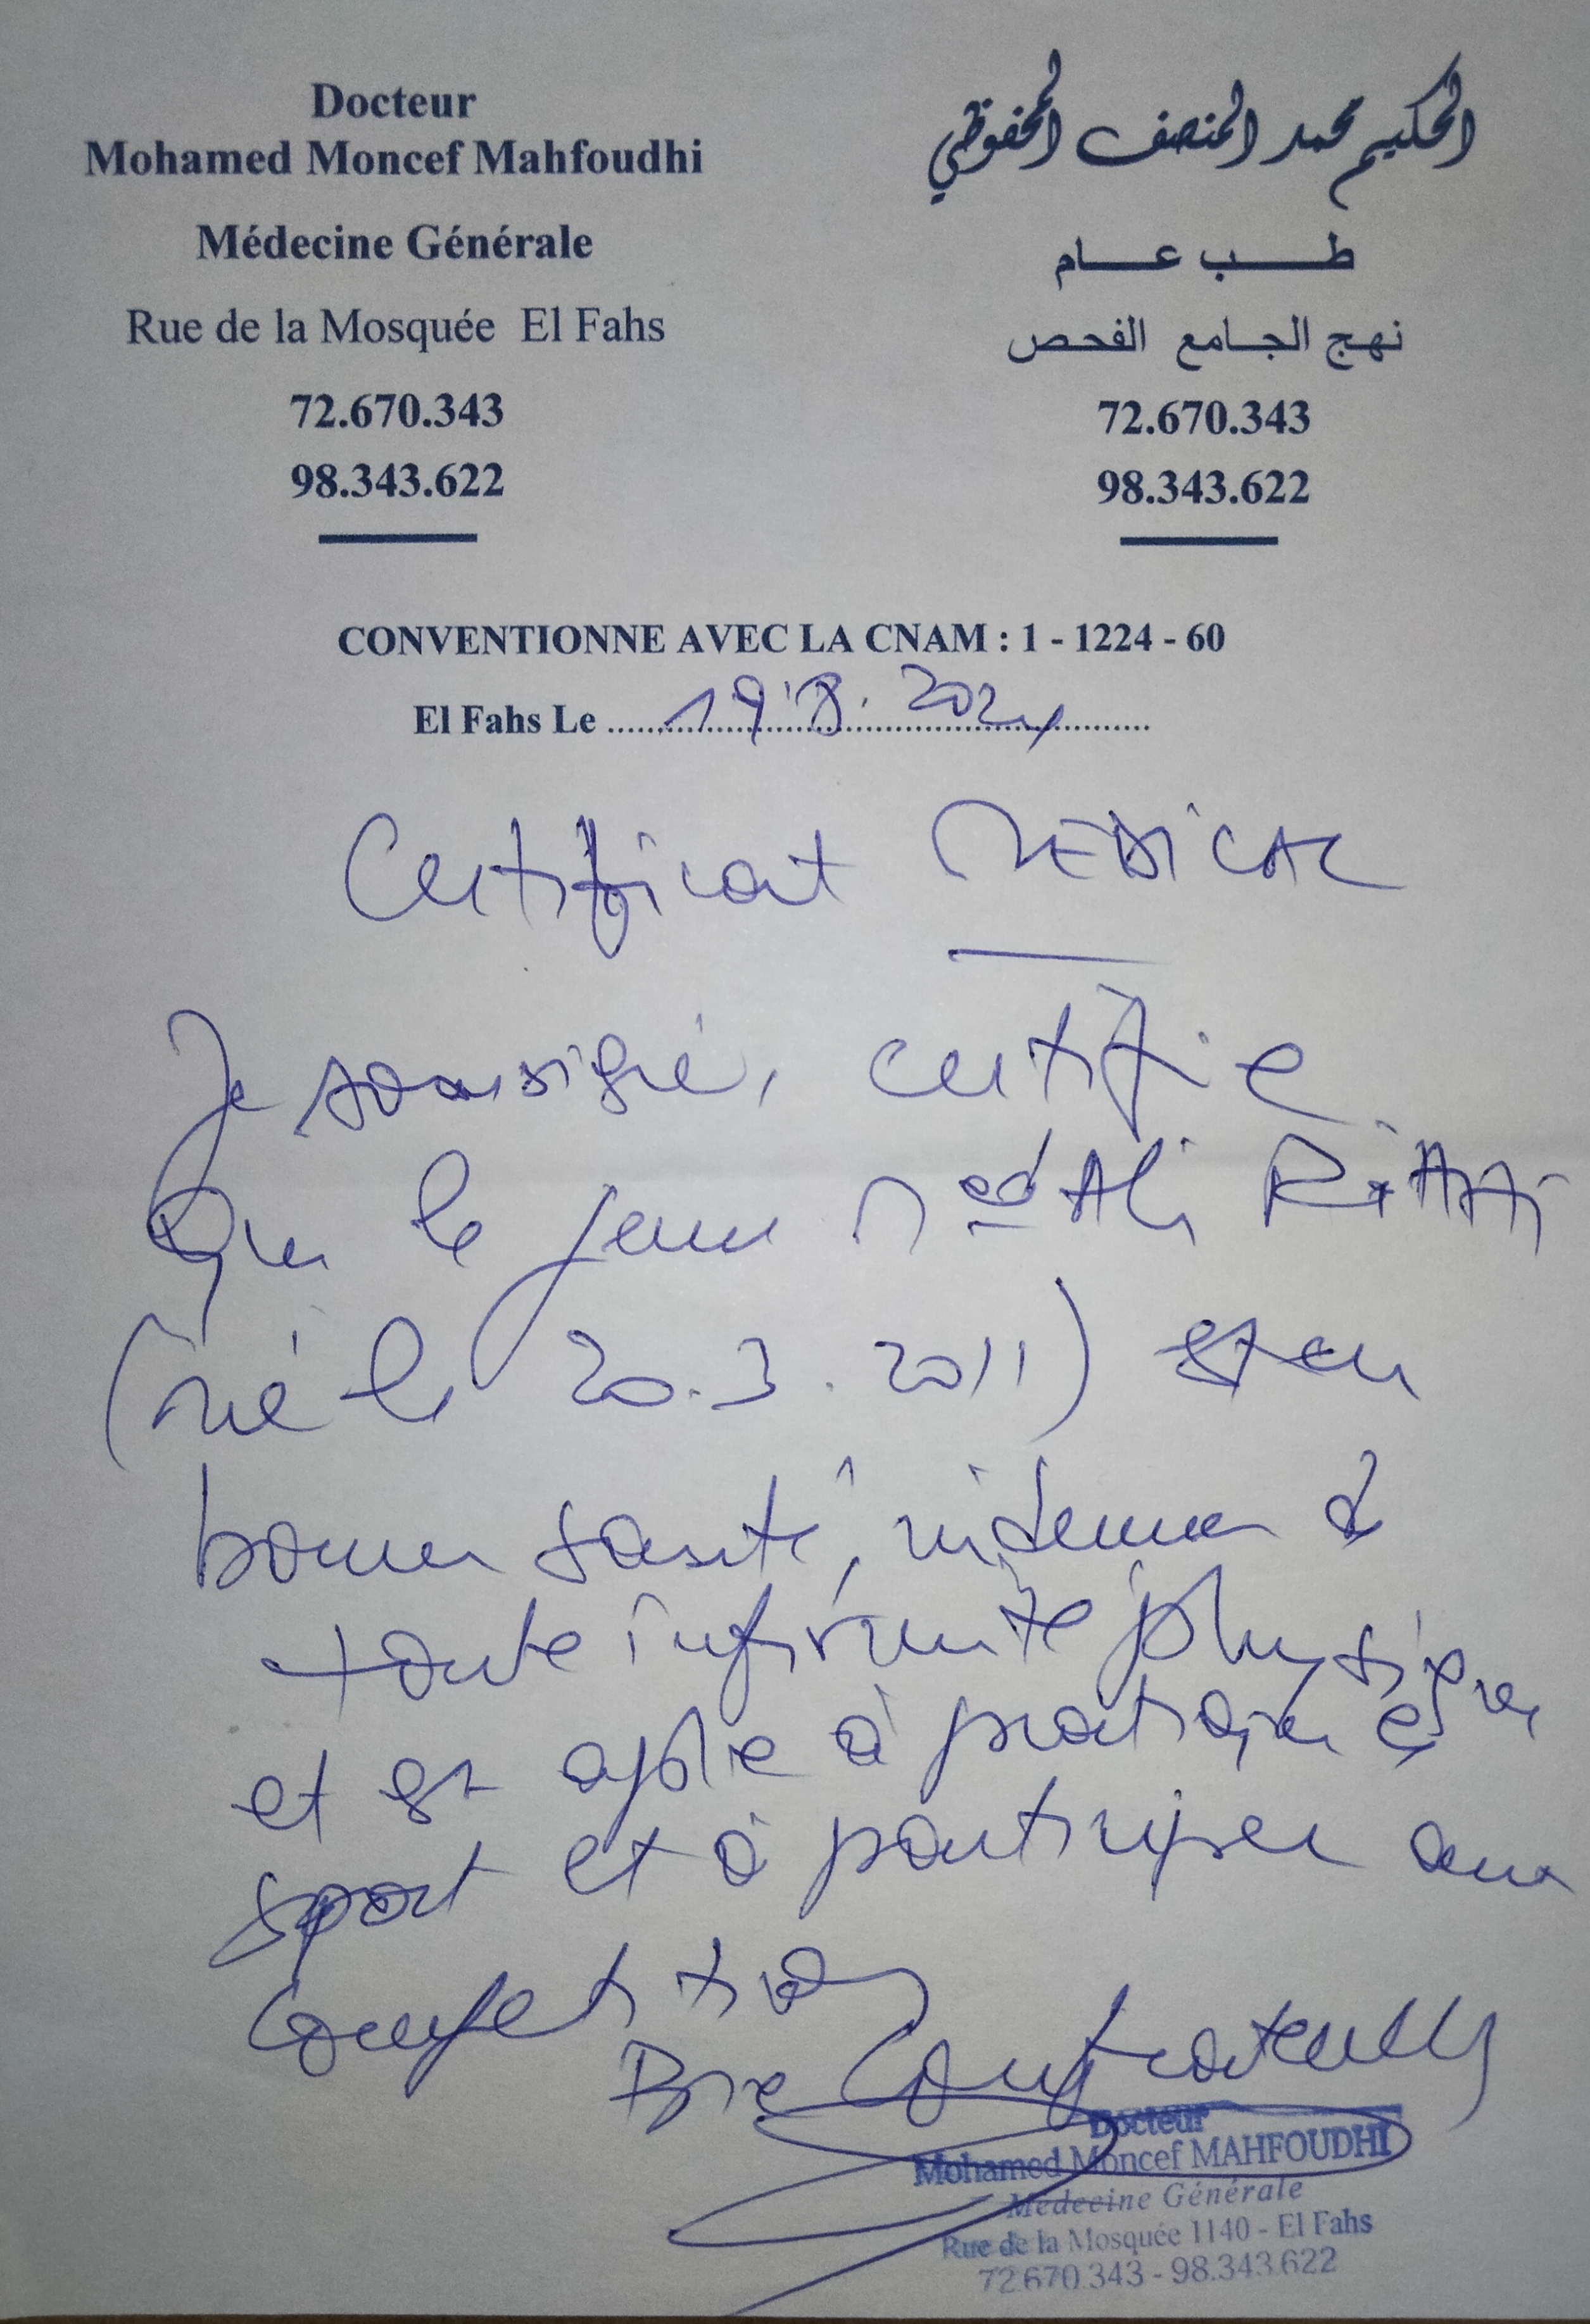 Docteur
Mohamed Moncef Mahfoudhi
Médecine Générale
Rue de la Mosquée El Fahs
72.670.343
98.343.622
الحكيم محمد المنصف المحفوظي
طب عام
نهج الجامع الفحص
72.670.343
98.343.622
CONVENTIONNE AVEC LA CNAM : 1 - 1224 - 60
El Fahs Le 19.8.2024
Certificat MEDICAL
Je soussigné, certifie
que le jeune Med Ali
(né le 20.3.2011) est en
bonne santé, indemne de
toute infirmité physique
et est apte à pratiquer le
sport et à participer aux
compétitions
Bien Confraternelly
Docteur
Mohamed Moncef MAHFOUDHI
Médecine Générale
Rue de la Mosquée 1140 - El Fahs
72.670.343 - 98.343.622